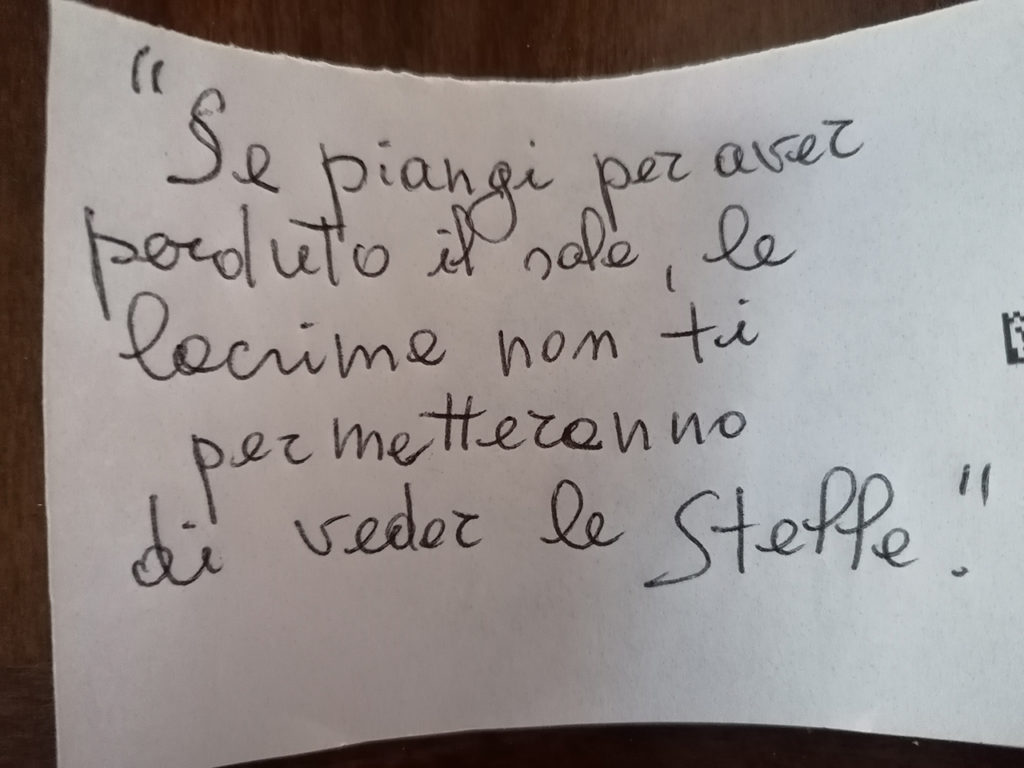 "Se piangi per aver
perduto il sole, le
lacrime non ti
permetteranno
di veder le stelle."